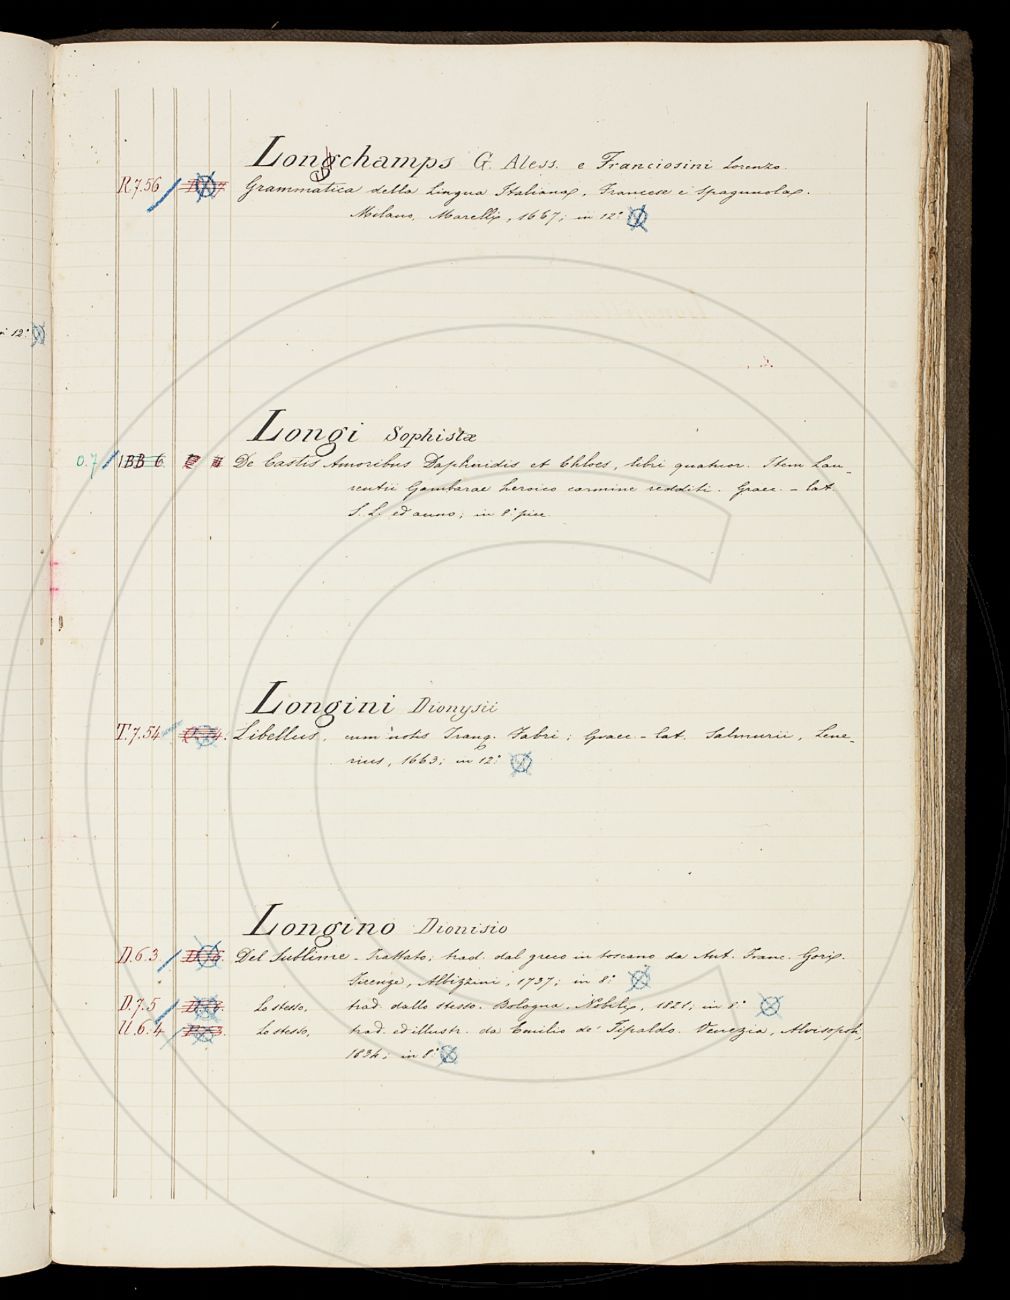 Longchamps G. Aless. e Franciosini Lorenzo
R.7.56 Grammatica della Lingua Italiana, Francese e Spagnuola.
Milano, Marelli, 1667; in 12°
in 12°
Longi Sophistæ
O.7 BB 6 De Castis Amoribus Daphnidis et Chloes, libri quatuor. Item Lau-
rentii Gambarae heroico carmine redditi. Graec. - lat.
S. L. ed anno; in 8° picc.
Longini Dionysii
T.7.54 Libellus, cum notis Tanaq. Fabri; Graec - lat. Salmurii, Lene-
rius, 1663; in 12°
Longino Dionisio
D.6.3 Del Sublime - Trattato, trad. dal greco in toscano da Ant. Franc. Gori.
Firenze, Albizzini, 1737; in 8°
D.7.5 Lo stesso, trad. dallo stesso. Bologna, Nobili, 1821; in 8°
U.6.4 Lo stesso, trad. ed illustr. da Emilio de' Tipaldo. Venezia, Alvisopoli,
1834; in 8°